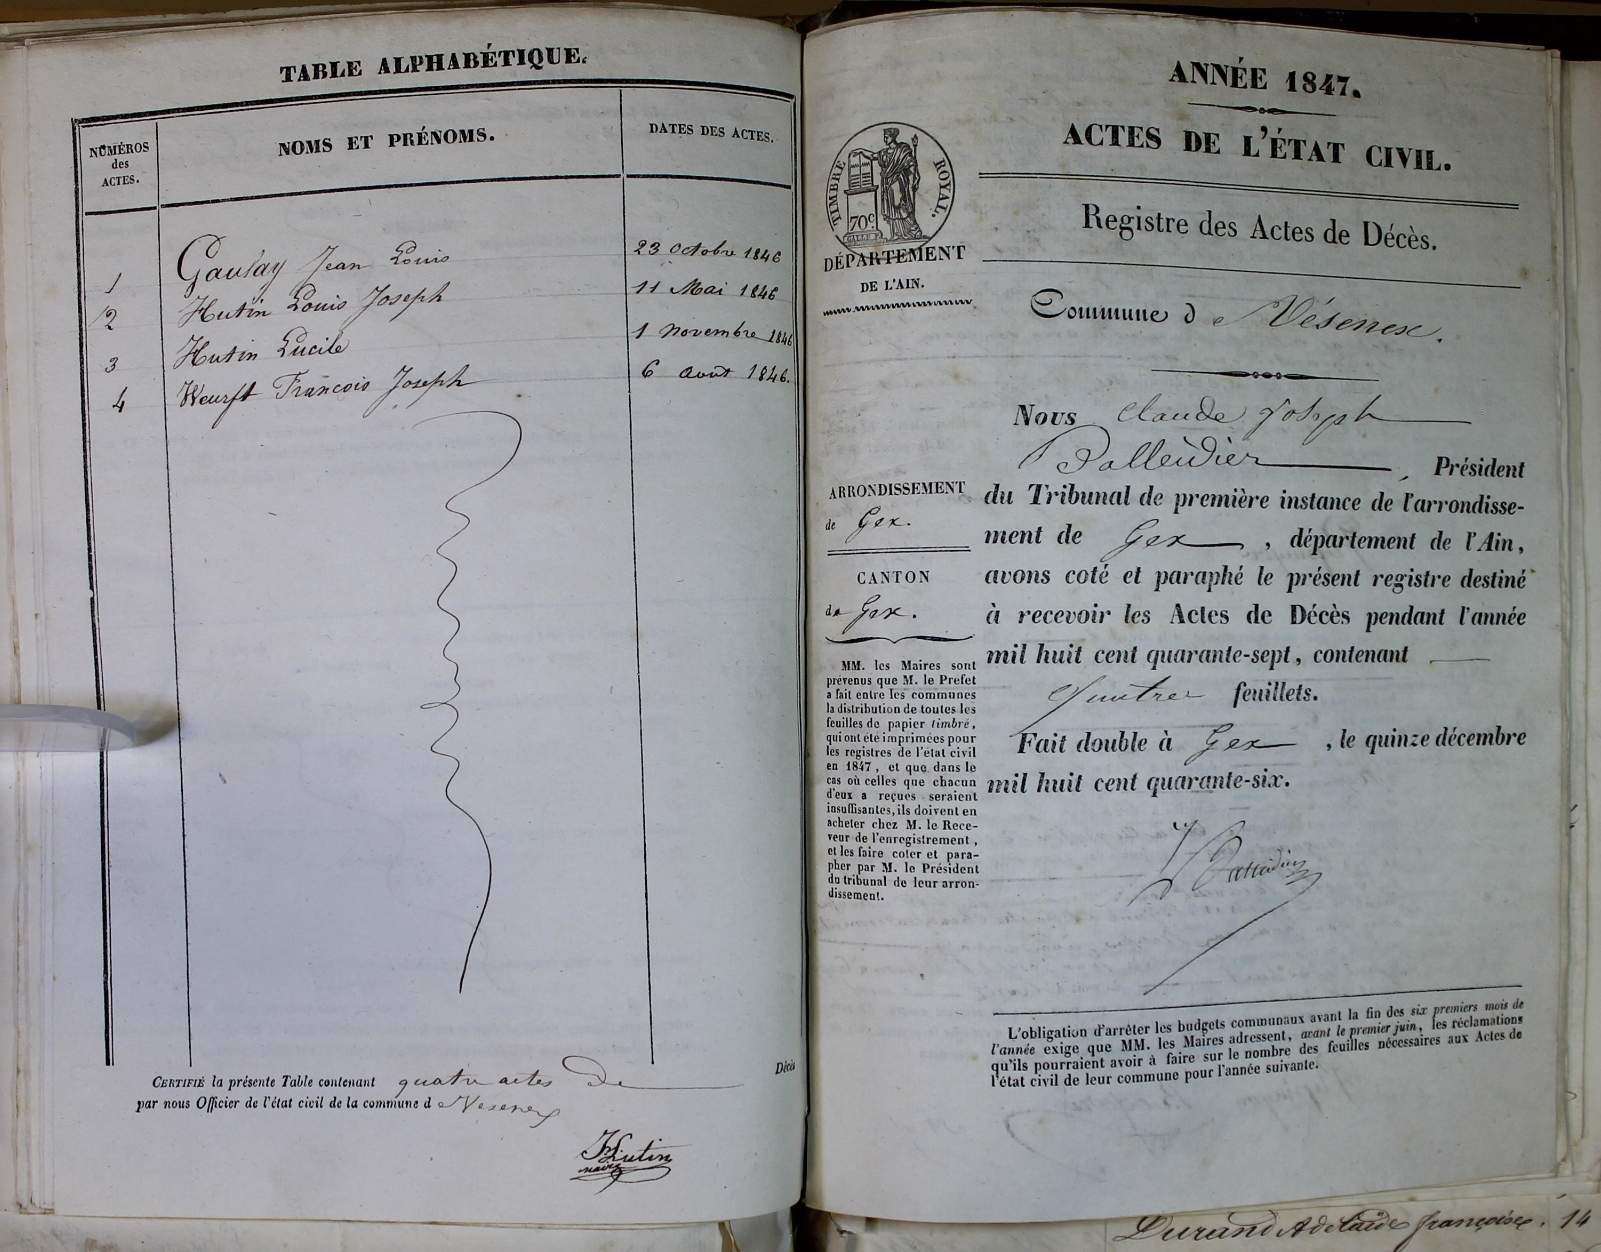 TABLE ALPHABÉTIQUE.
NUMÉROS
des
ACTES.
NOMS ET PRÉNOMS.
DATES DES ACTES.
1 Gaulay Jean Louis 23 Octobre 1846
2 Hutin Louis Joseph 11 Mai 1846
3 Hutin Lucile 1 Novembre 1846
4 François Joseph 6 aout 1846.
Décès
CERTIFIÉ la présente Table contenant quatre actes De
par nous Officier de l'état civil de la commune d e Vesenex
Hutin
maire
ANNÉE 1847.
ACTES DE L'ÉTAT CIVIL.
TIMBRE ROYAL.
70c.
DÉPARTEMENT
DE L'AIN.
Registre des Actes de Décès.
Commune d e Vésenex.
ARRONDISSEMENT
de Gex.
CANTON
de Gex.
MM. les Maires sont
prévenus que M. le Prefet
a fait entre les communes
la distribution de toutes les
feuilles de papier timbré,
qui ont été imprimées pour
les registres de l'état civil
en 1847, et que dans le
cas où celles que chacun
d'eux a reçues seraient
insuffisantes, ils doivent en
acheter chez M. le Rece-
veur de l'enregistrement,
et les faire coter et para-
pher par M. le Président
du tribunal de leur arron-
dissement.
Nous Claude Joseph
, Président
du Tribunal de première instance de l'arrondisse-
ment de Gex , département de l'Ain,
avons coté et paraphé le présent registre destiné
à recevoir les Actes de Décès pendant l'année
mil huit cent quarante-sept, contenant
quatre feuillets.
Fait double à Gex , le quinze décembre
mil huit cent quarante-six.
L'obligation d'arrêter les budgets communaux avant la fin des six premiers mois de
l'année exige que MM. les Maires adressent, avant le premier juin, les réclamations
qu'ils pourraient avoir à faire sur le nombre des feuilles nécessaires aux Actes de
l'état civil de leur commune pour l'année suivante.
Durand Adelaide françoise. 14